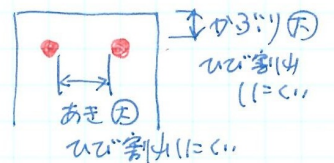 かぶり㊅
ひび割れ
しにくい
あき㊅
ひび割れしにくい